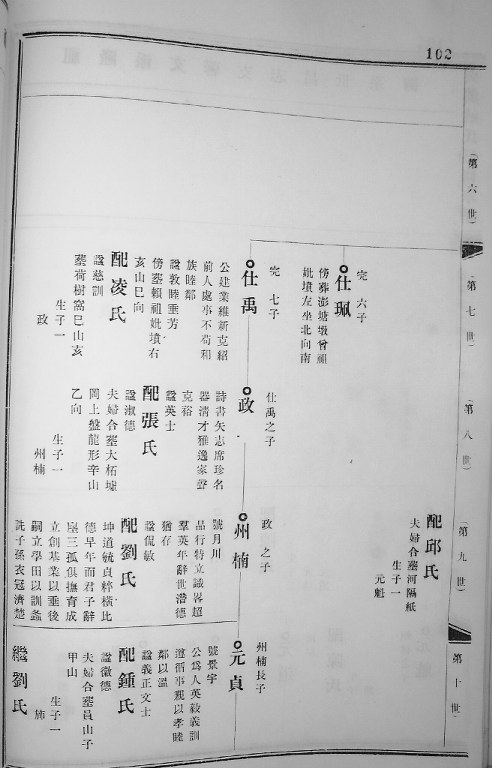 102
(第六世)
(第七世)
(第八世)
(第九世)
(第十世)
完 六子
仕珮
傍葬澎塘墩曾祖
妣墳左坐北向南
完 七子
仕禹
公建業維新克紹
前人處事不苟和
族睦鄰
諡敦睦垂芳
傍葬賴祖妣墳右
亥山巳向
配凌氏
諡慈訓
葬荷樹窩巳山亥
生子一
政
仕禹之子
政
詩書矢志席珍名
器清才雅逸家聲
克裕
諡英士
配張氏
諡淑德
夫婦合葬大柘墟
岡上盤龍形辛山
乙向
生子一
州楠
配邱氏
夫婦合葬河隔紙
生子一
元魁
政 之子
州楠
號月川
品行特立識畧超
羣英年辭世潛德
猶存
諡侃敏
配劉氏
坤道毓貞粹橫比
德早年而君子辭
塵三孤俱撫育成
立創基業以垂後
嗣立學田以訓螽
詵子孫衣冠濟楚
州楠長子
元貞
號景宇
公爲人英毅義訓
遵循事親以孝睦
鄰以溫
諡義正文士
配鍾氏
諡徽德
夫婦合葬員山子
甲山
生子一
繼劉氏